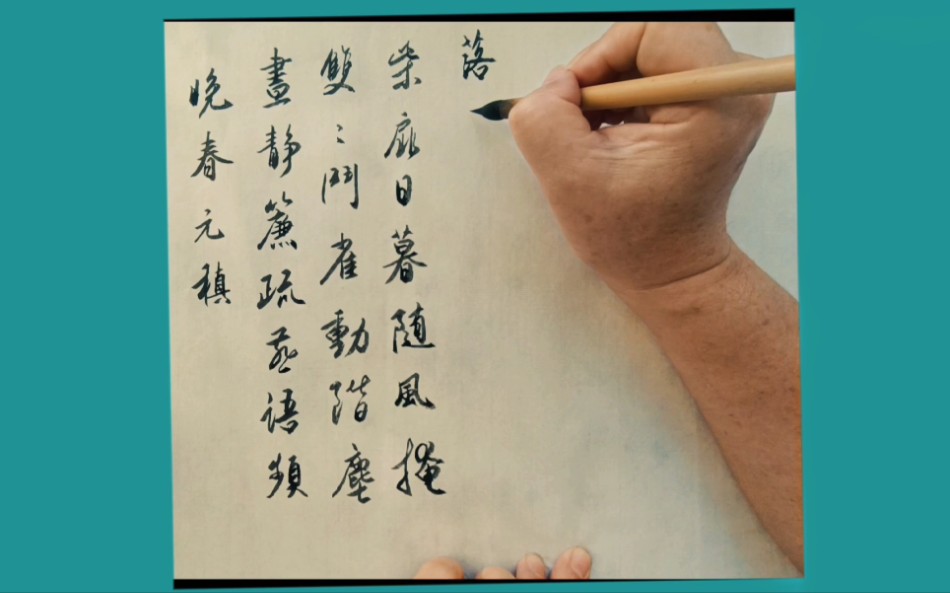 晚春元稹
晝静簾疏燕語頻
雙〻鬥雀動階塵
柴扉日暮随風掩
落